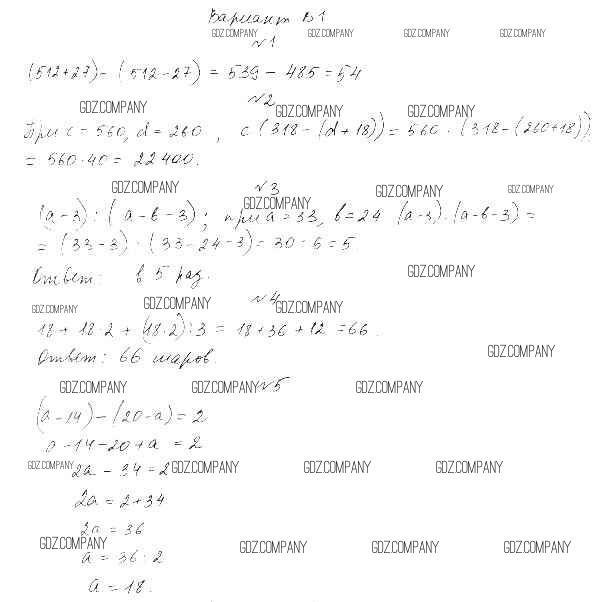 Вариант В1
GDZ.COMPANY GDZ.COMPANY GDZ.COMPANY GDZ.COMPANY
№1
(512+27) - (512-27) = 539 - 485 = 54
GDZ.COMPANY №2 GDZ.COMPANY GDZ.COMPANY
При c = 560, d = 260, c (318 - (d + 18)) = 560 · (318 - (260+18))
= 560 · 40 = 22400.
GDZ.COMPANY №3 GDZ.COMPANY GDZ.COMPANY GDZ.COMPANY
(a - 3) : (a - b - 3); при a = 33, b = 24 (a-3) : (a-b-3) =
= (33-3) : (33-24-3) = 30 : 6 = 5.
Ответ: в 5 раз. GDZ.COMPANY
GDZ.COMPANY GDZ.COMPANY №4 GDZ.COMPANY
18 + 18·2 + (18·2):3 = 18+36+12 = 66.
Ответ: 66 шаров. GDZ.COMPANY
GDZ.COMPANY GDZ.COMPANY №5 GDZ.COMPANY
(a-14) - (20-a) = 2
a - 14 - 20 + a = 2
GDZ.COMPANY 2a - 34 = 2 GDZ.COMPANY GDZ.COMPANY GDZ.COMPANY
2a = 2+34
2a = 36
GDZ.COMPANY GDZ.COMPANY GDZ.COMPANY GDZ.COMPANY
a = 36 : 2
a = 18.